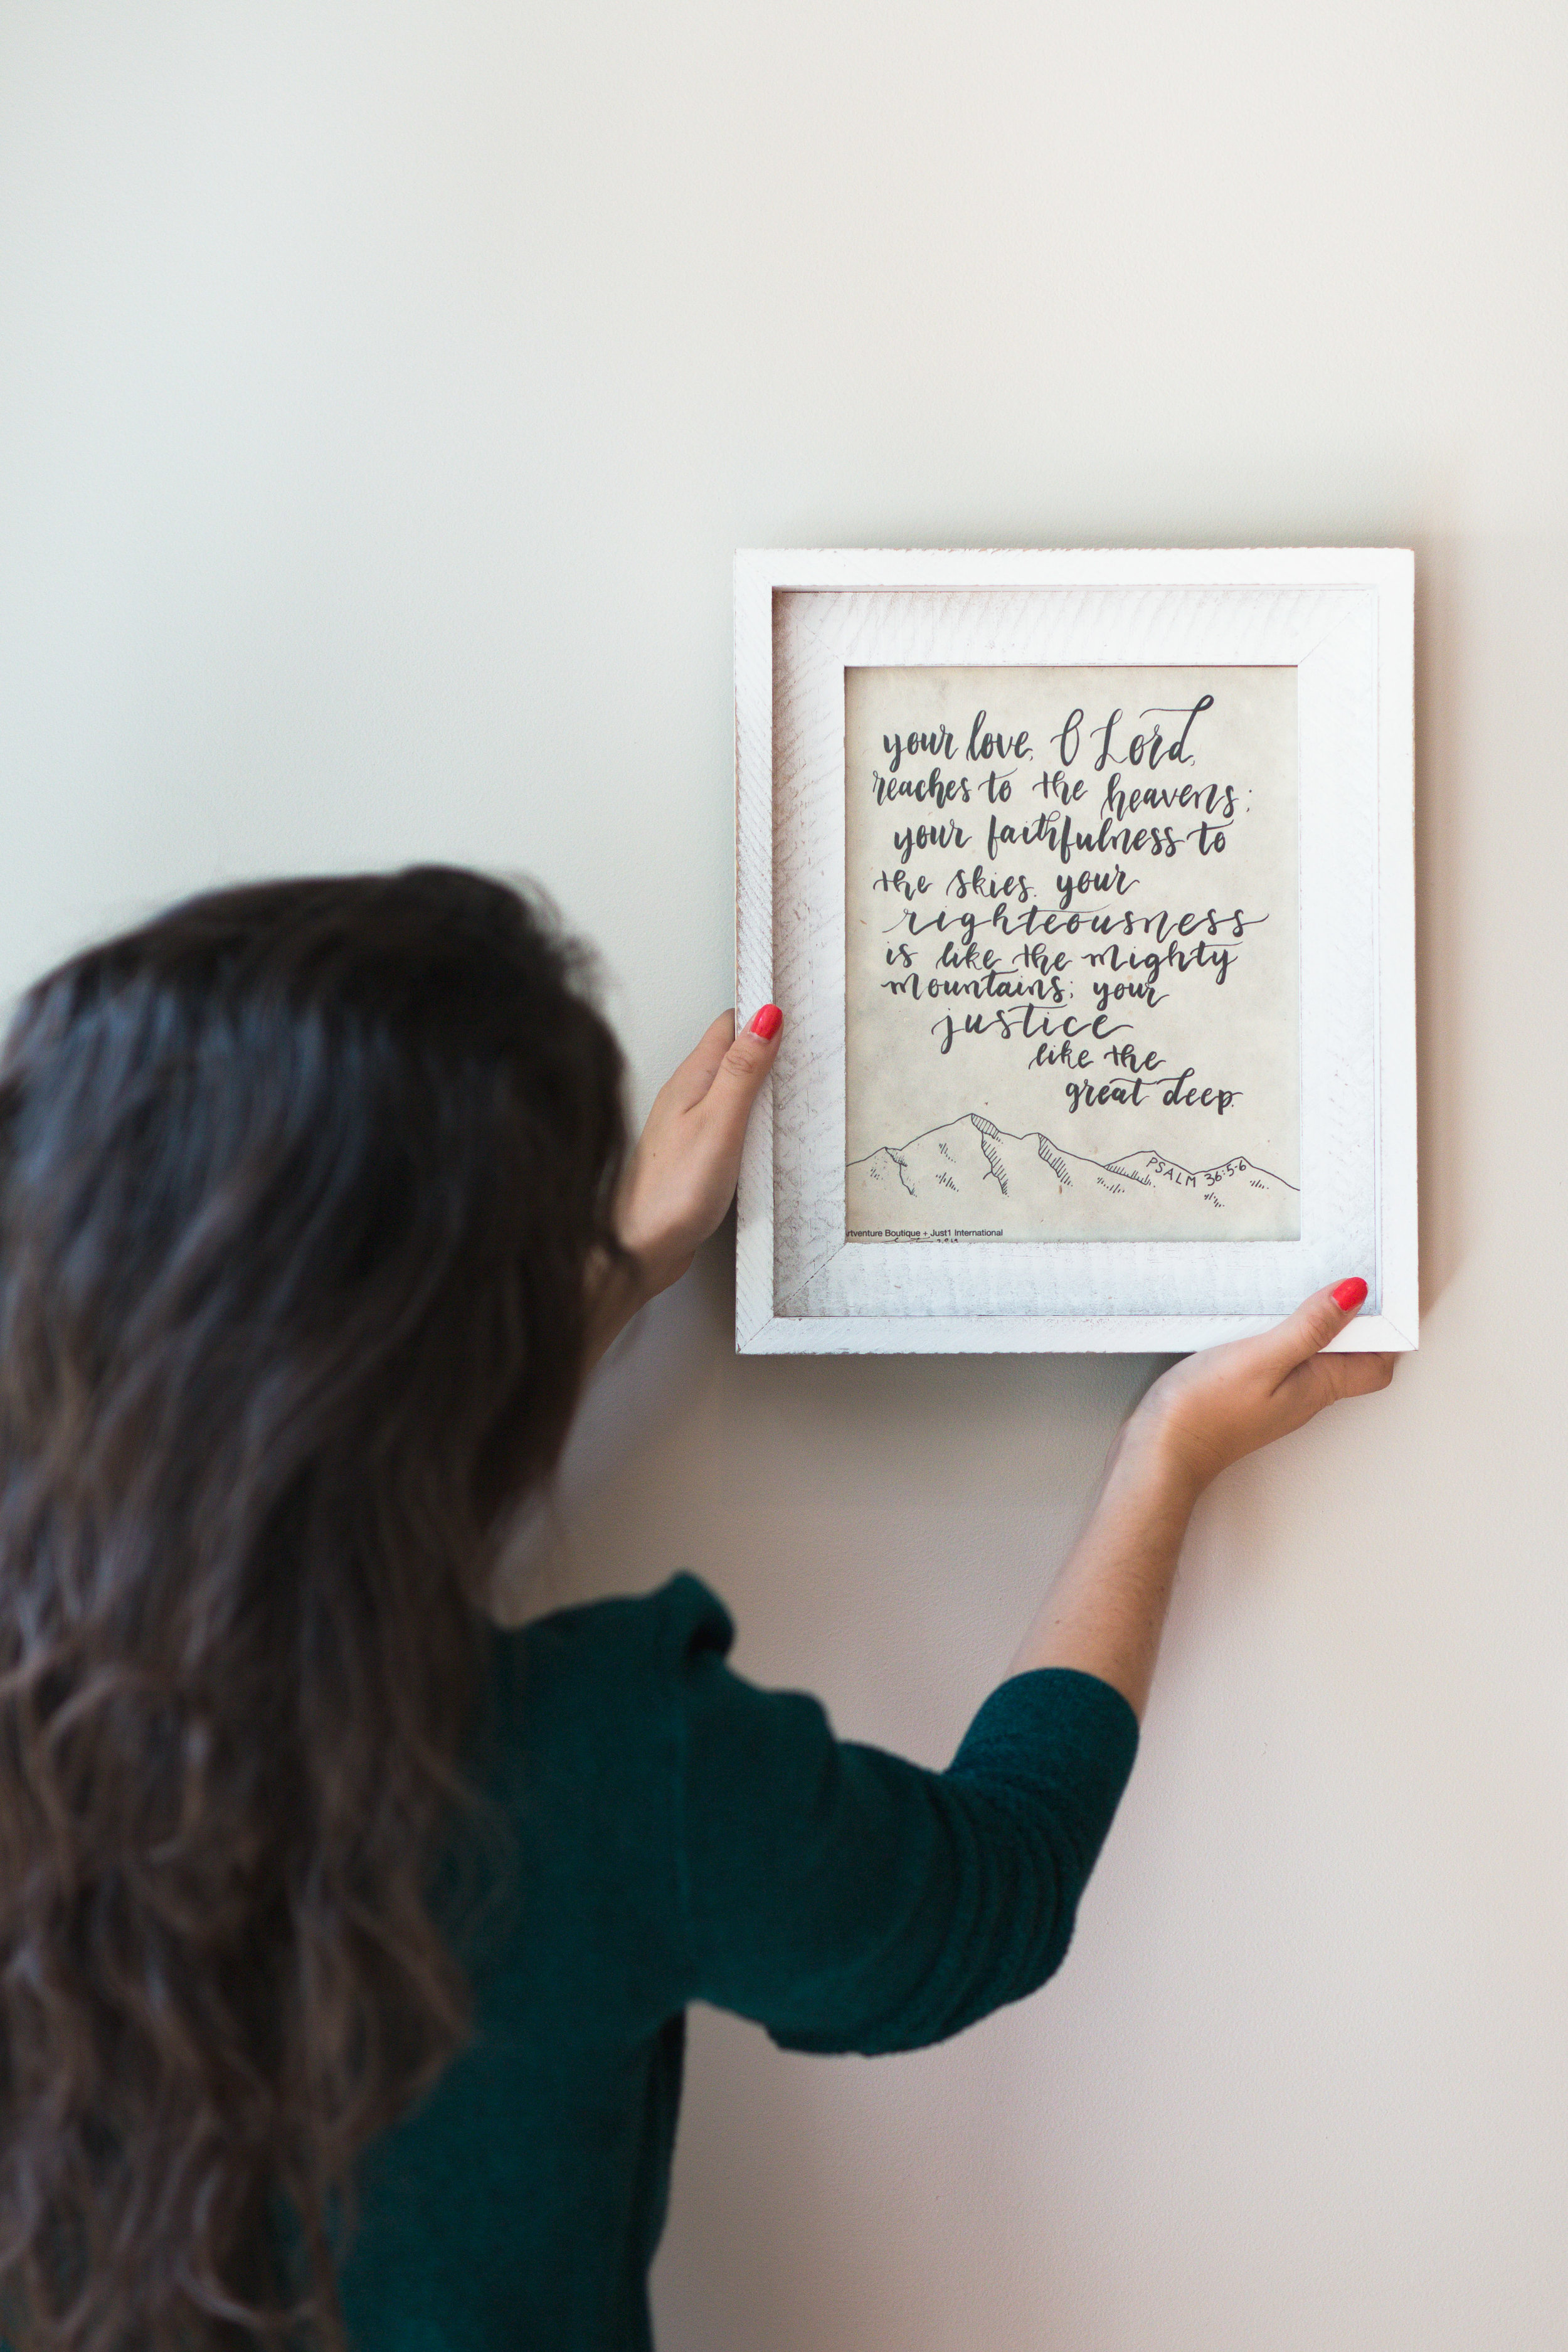 your love, O Lord,
reaches to the heavens;
your faithfulness to
the skies. your
righteousness
is like the mighty
mountains; your
justice
like the
great deep.
PSALM 36:5-6
rtventure Boutique + Just1 International